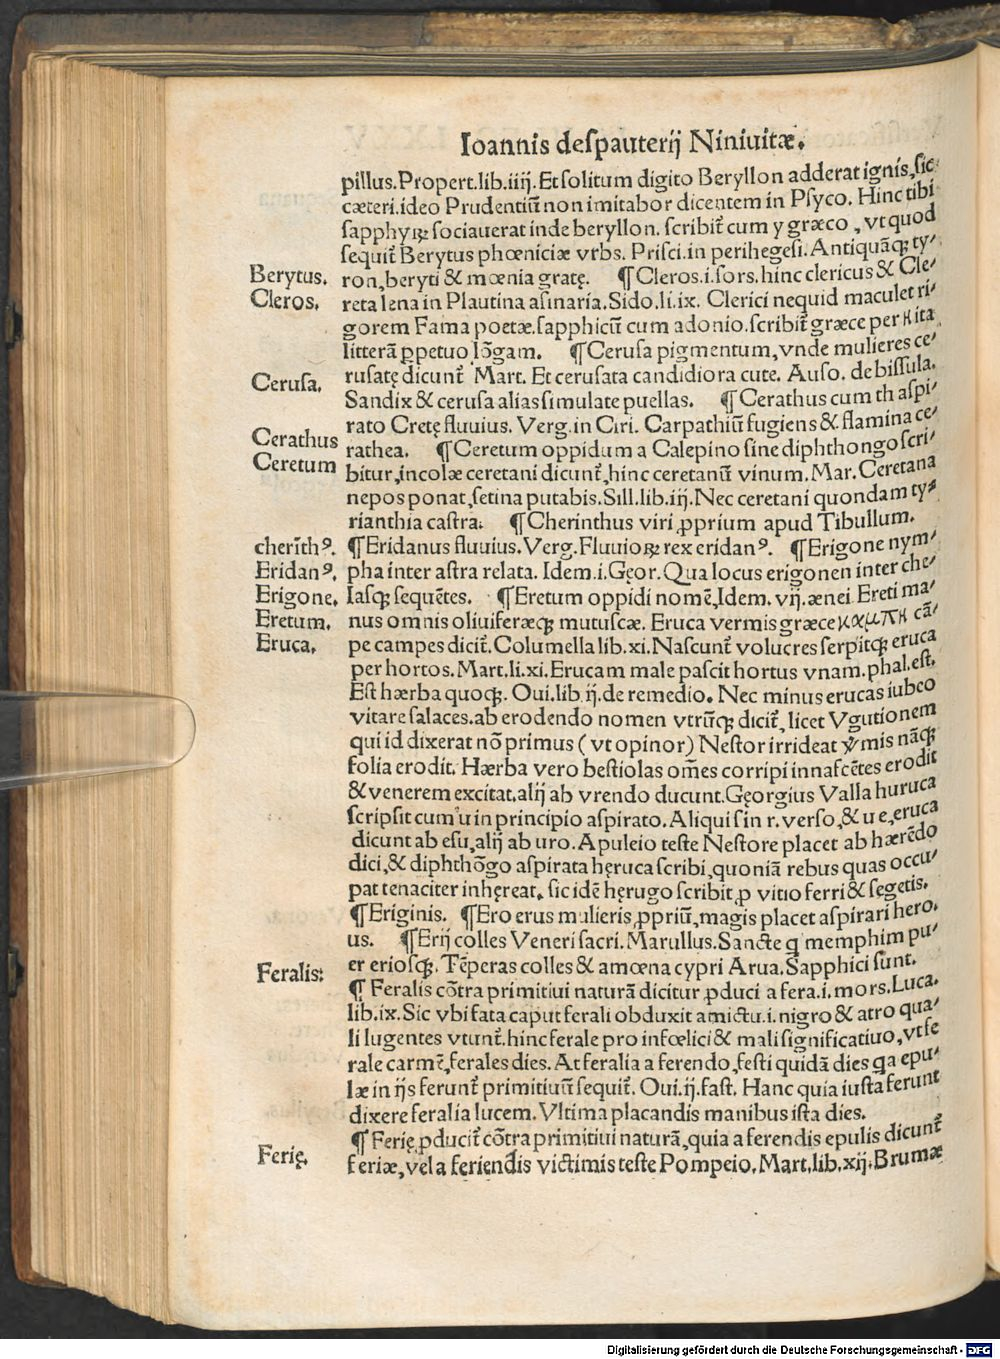 Ioannis despauterij Niniuitæ.
pillus. Propert. lib. iiij. Et solitum digito Beryllon adderat ignis, sic
cæteri. ideo Prudentiū non imitabor dicentem in Psyco. Hinc tibi
sapphyrꝝ sociauerat inde beryllon. scribit̄ cum y græco, vt quod
sequit̄ Berytus phœniciæ vrbs. Prisci. in perihegesi. Antiquāqꝫ ty-
Berytus. ron, beryti & mœnia gratę. ¶ Cleros. i. sors. hinc clericus & Cle-
Cleros. reta lena in Plautina asinaria. Sido. li. ix. Clerici nequid maculet ri-
gorem Fama poetæ. sapphicū cum adonio. scribit̄ græce per κ ita
litterā ꝑpetuo lōgam. ¶ Cerusa pigmentum, vnde mulieres ce-
Cerusa. rusatę dicunt̄ Mart. Et cerusata candidiora cute. Auso. de bissula.
Sandix & cerusa alias simulate puellas. ¶ Cerathus cum th aspi-
rato Cretę fluuius. Verg. in Ciri. Carpathiū fugiens & flamina ce-
Cerathus rathea. ¶ Ceretum oppidum a Calepino sine diphthongo scri-
Ceretum bitur, incolæ ceretani dicunt̄, hinc ceretanū vinum. Mar. Ceretana
nepos ponat, setina putabis. Sill. lib. iij. Nec ceretani quondam ty-
rianthia castra: ¶ Cherinthus viri ꝓprium apud Tibullum.
cherīthꝰ. ¶ Eridanus fluuius. Verg. Fluuioꝝ rex eridanꝰ. ¶ Erigone nym-
Eridanꝰ. pha inter astra relata. Idem. i. Gęor. Qua locus erigonen inter che-
Erigone. lasqꝫ sequētes. ¶ Eretum oppidi nomē, Idem. vij. ænei. Ereti ma-
Eretum. nus omnis oliuiferæqꝫ mutuscæ. Eruca vermis græce καμπκ cā-
Eruca. pe campes dicit̄. Columella lib. xi. Nascunt̄ volucres serpitqꝫ eruca
per hortos. Mart. li. xi. Erucam male pascit hortus vnam. phal. est.
Est hærba quoqꝫ. Oui. lib ij. de remedio. Nec minus erucas iubeo
vitare salaces. ab erodendo nomen vtrūqꝫ dicit̄, licet Vgutionem
qui id dixerat nō primus (vt opinor) Nestor irrideat mis nāqꝫ
folia erodit. Hærba vero bestiolas om̄es corripi innascētes erodit
& venerem excitat. alij ab vrendo ducunt. Gęorgius Valla huruca
scripsit cum u in principio aspirato. Aliqui sin r. verso, & u e, eruca
dicunt ab esu, alij ab uro. Apuleio teste Nestore placet ab hærēdo
dici, & diphthōgo aspirata hęruca scribi, quoniā rebus quas occu-
pat tenaciter inhęreat. sic idē hęrugo scribit ꝓ vitio ferri & segetis.
¶ Eriginis. ¶ Ero erus mulieris ꝓpriū, magis placet aspirari hero.
us. ¶ Erij colles Veneri sacri. Marullus. Sancte q memphim pu-
er eriosqꝫ. Tēperas colles & amœna cypri Arua. Sapphici sunt.
Feralis: ¶ Feralis cōtra primitiui naturā dicitur ꝓduci a fera. i. mors. Luca.
lib. ix. Sic vbi fata caput ferali obduxit amictu. i. nigro & atro qua-
li lugentes vtunt̄. hinc ferale pro infœlici & mali significatiuo, vt fe
rale carmē, ferales dies. At feralia a ferendo, festi quidā dies qa epu-
læ in ijs ferunt̄ primitiuū sequit̄. Oui. ij. fast. Hanc quia iusta ferunt
dixere feralia lucem. Vltima placandis manibus ista dies.
¶ Ferię ꝓducit̄ cōtra primitiui naturā, quia a ferendis epulis dicunt̄
Ferię. feriæ, vel a feriendis victimis teste Pompeio. Mart. lib. xij. Brumæ
Digitalisierung gefördert durch die Deutsche Forschungsgemeinschaft - DFG